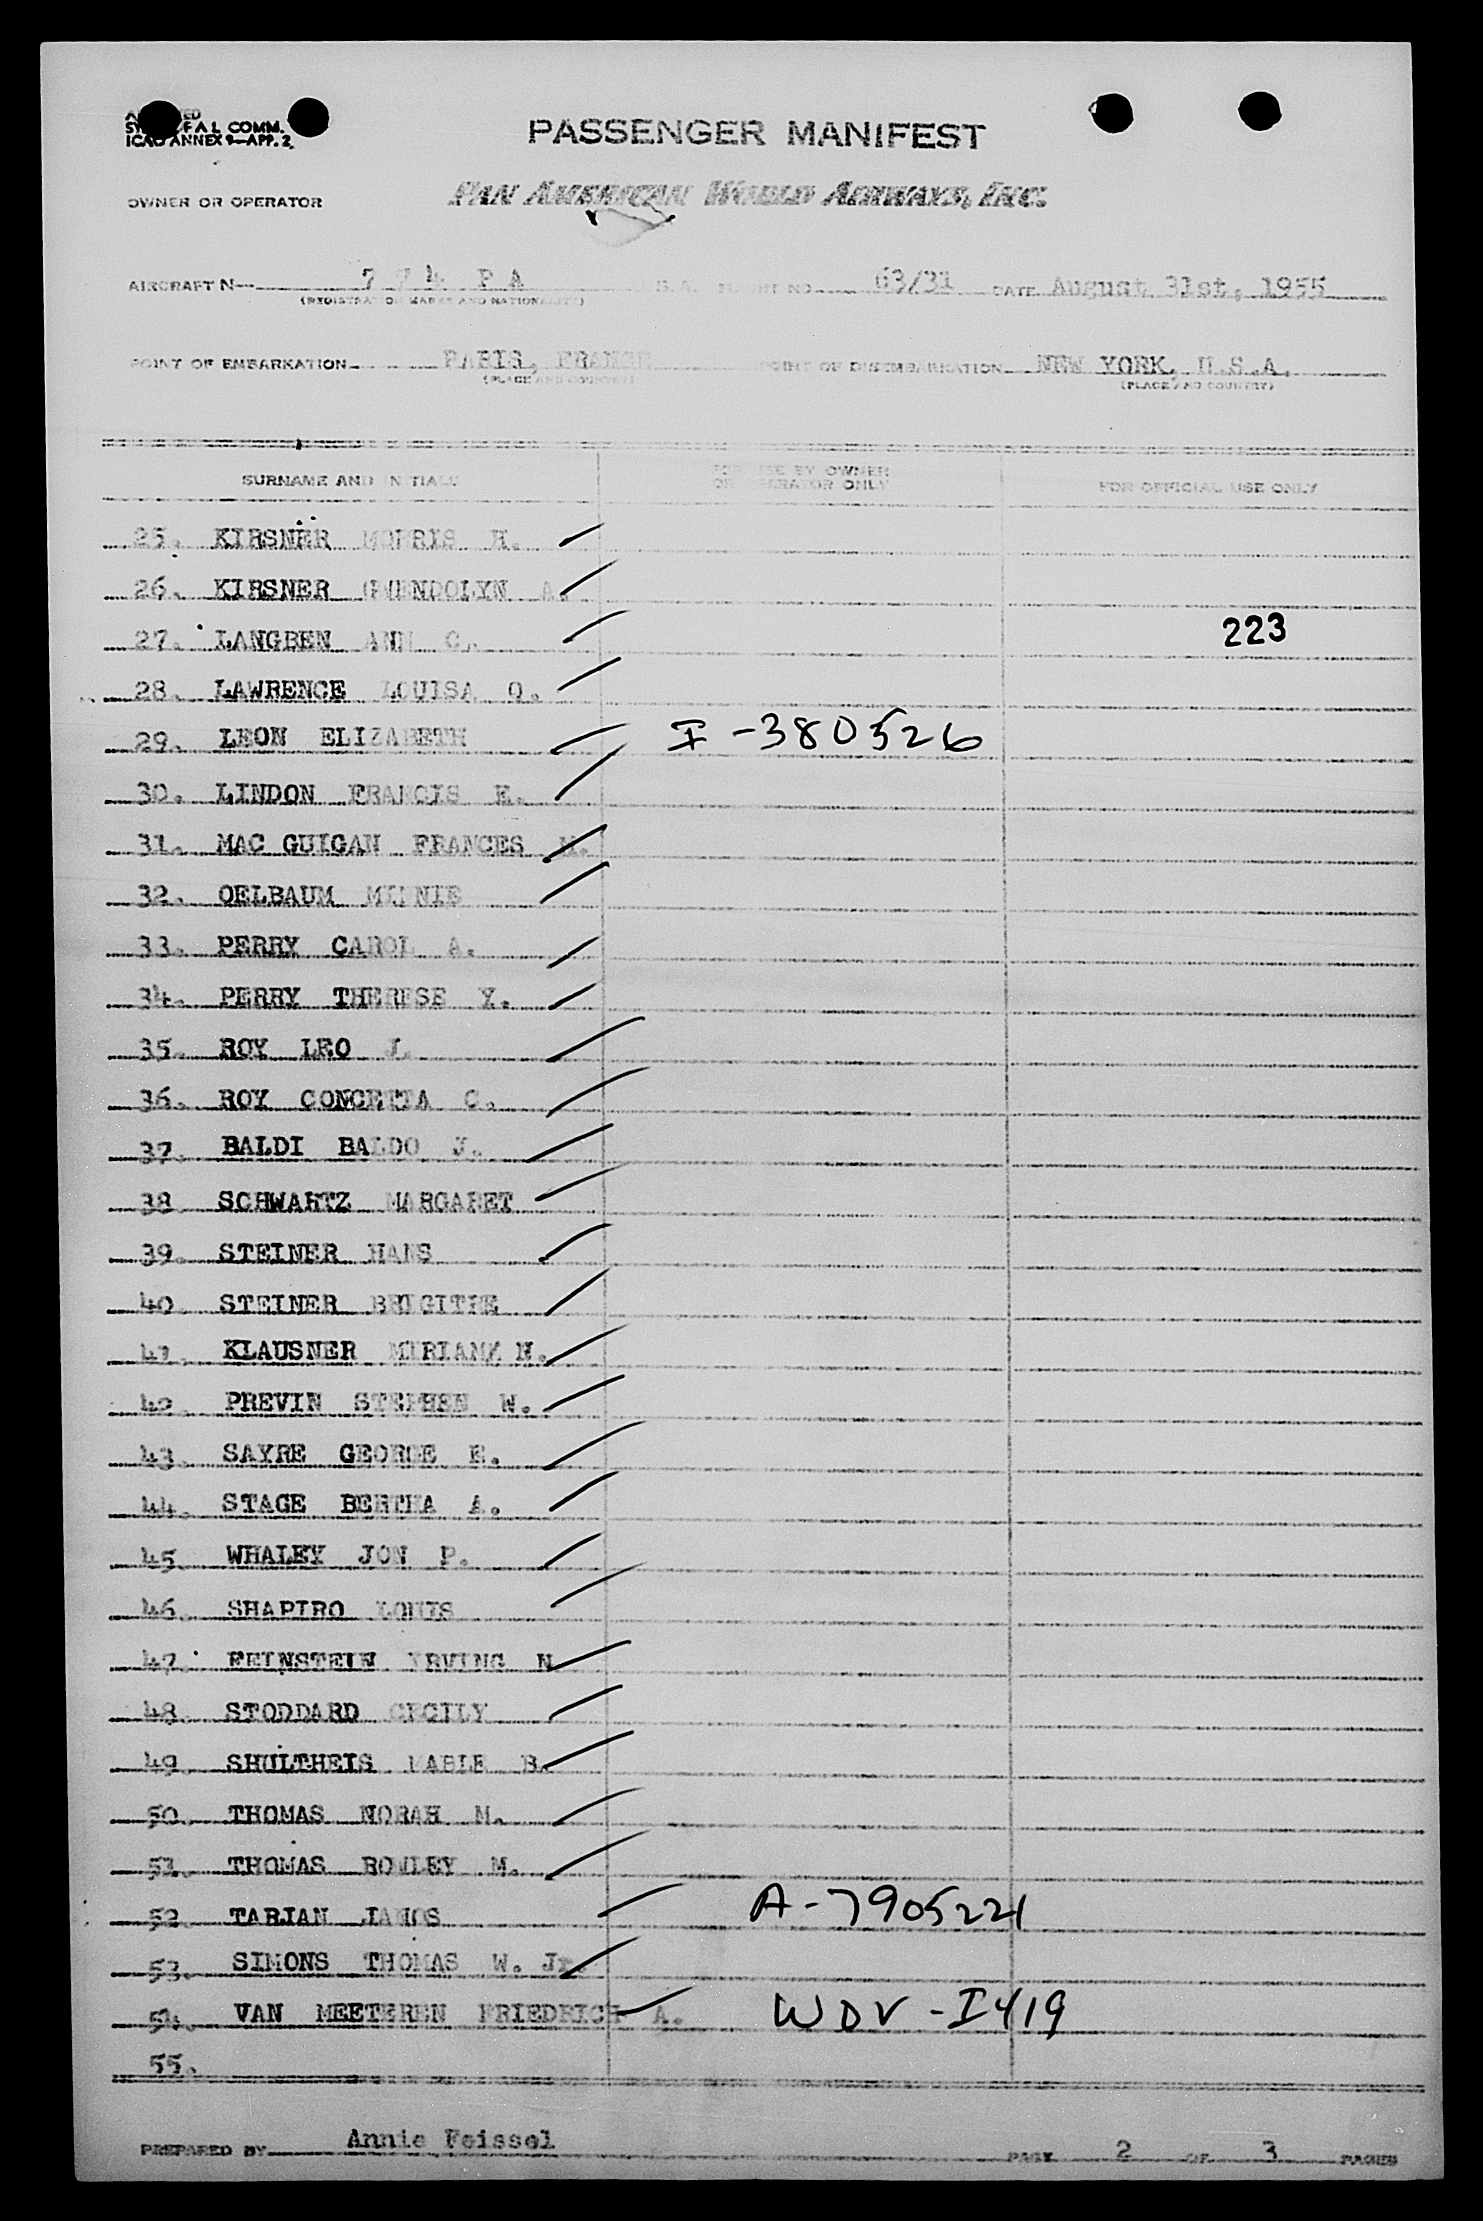 F A L COMM.
ICAO ANNEX 9—APP. 2.
PASSENGER MANIFEST
OWNER OR OPERATOR PAN AMERICAN WORLD AIRWAYS, INC.
AIRCRAFT N— 7 7 4 P A U.S.A. FLIGHT NO. 63/31 DATE August 31st, 1955
(REGISTRATION MARKS AND NATIONALITY)
POINT OF EMBARKATION PARIS, FRANCE POINT OF DISEMBARKATION NEW YORK, U.S.A.
(PLACE AND COUNTRY) (PLACE AND COUNTRY)
SURNAME AND INITIALS FOR USE BY OWNER OR OPERATOR ONLY FOR OFFICIAL USE ONLY
25. KIRSNER MORRIS H.
26. KIRSNER GWENDOLYN A.
27. LANGREN ANN C. 223
28. LAWRENCE LOUISA O.
29. LEON ELIZABETH I-380526
30. LINDON FRANCIS E.
31. MAC GUIGAN FRANCES M.
32. OELBAUM MINNIE
33. PERRY CAROL A.
34. PERRY THERESE Y.
35. ROY LEO J.
36. ROY CONCETTA C.
37. BALDI BALDO J.
38 SCHWARTZ MARGARET
39. STEINER HANS
40. STEINER BRIGITTE
41. KLAUSNER N.
42. PREVIN STEPHEN W.
43. SAYRE GEORGE E.
44. STAGE BERTHA A.
45. WHALEY JON P.
46. SHAPIRO LOUIS
47. FEINSTEIN IRVING N
48. STODDARD CECILY
49. SHULTHEIS MABLE B.
50. THOMAS NORAH M.
51. THOMAS ROWLEY M.
52. TARJAN JANOS A-7905221
53. SIMONS THOMAS W. Jr.
54. VAN MEETEREN FRIEDRICH A. WDV-I419
55.
PREPARED BY Annie Feissel PAGE 2 OF 3 PAGES